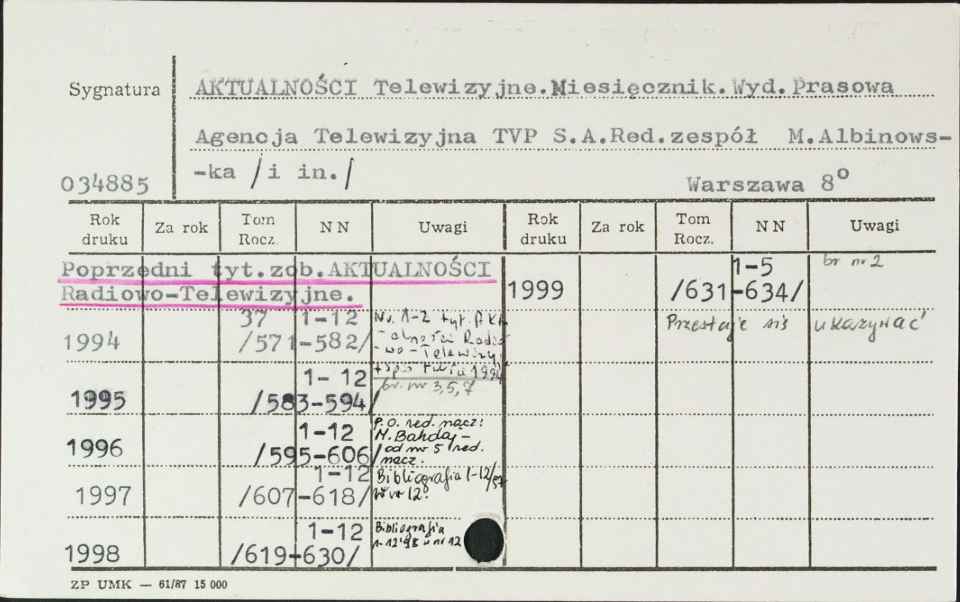 Sygnatura
AKTUALNOŚCI Telewizyjne.Miesięcznik.Wyd.Prasowa
Agencja Telewizyjna TVP S.A.Red.zespół M.Albinows-
-ka /i in./
034885
Warszawa 8°
Rok druku Za rok Tom Rocz. N N Uwagi Rok druku Za rok Tom Rocz. N N Uwagi
Poprzedni tyt.zob.AKTUALNOŚCI
Radiowo-Telewizyjne.
1994 37 1-12 /571-582/ Nr. 1-2 tyt. Akt
-alności Radio
-wo-Telewizyj
1994
1995 1-12 /583-594/ br. nr 3,5,7
1996 1-12 /595-606/ P.O. red. nacz:
M. Bahdaj -
/od nr 5 red.
nacz.
1997 1-12 /607-618/ Bibliografia 1-12/97
w nr 12.
1998 1-12 /619-630/ Bibliografia
1-12'98 w nr 12
1999 1-5 /631-634/ br nr 2
Przestaje się ukazywać
ZP UMK — 61/87 15 000